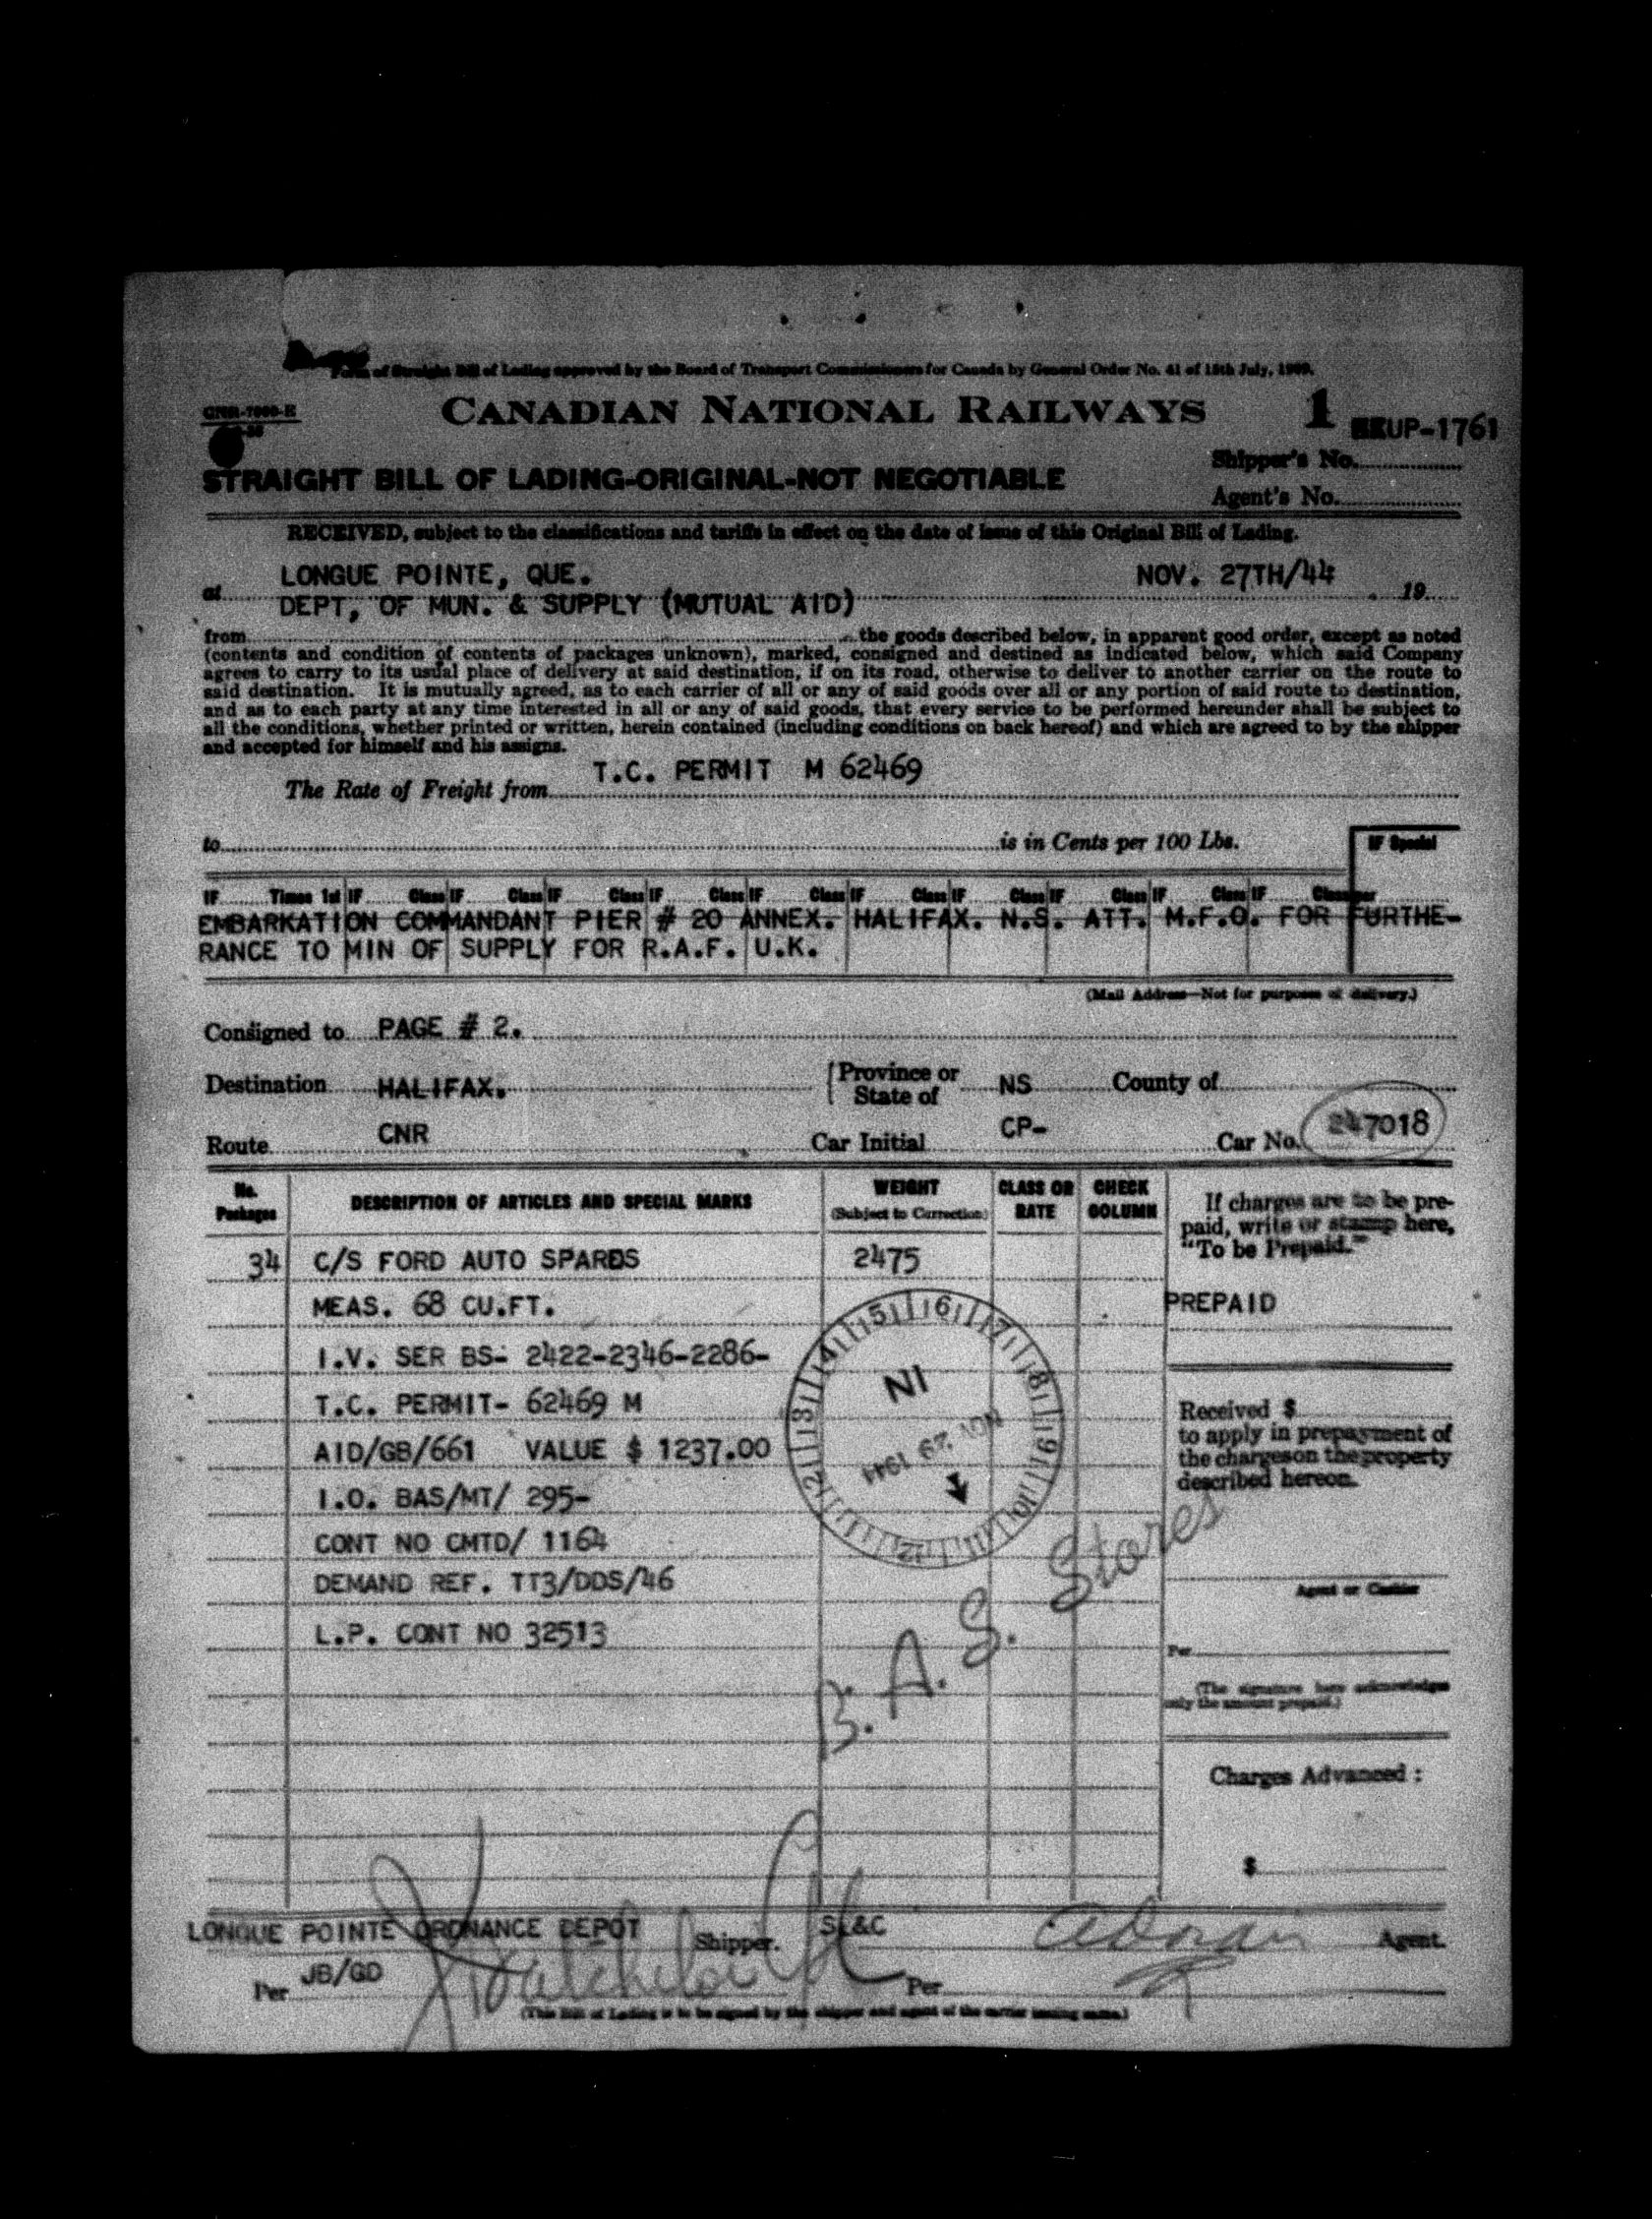 Form of Straight Bill of Lading approved by the Board of Transport Commissioners for Canada by General Order No. 41 of 15th July, 1909.
CANADIAN NATIONAL RAILWAYS 1
UP-1761
Shipper's No.
STRAIGHT BILL OF LADING-ORIGINAL-NOT NEGOTIABLE
Agent's No.
RECEIVED, subject to the classifications and tariffs in effect on the date of issue of this Original Bill of Lading.
LONGUE POINTE, QUE. NOV. 27TH/44
at 19
DEPT, OF MUN. & SUPPLY (MUTUAL AID)
from the goods described below, in apparent good order, except as noted
(contents and condition of contents of packages unknown), marked, consigned and destined as indicated below, which said Company
agrees to carry to its usual place of delivery at said destination, if on its road, otherwise to deliver to another carrier on the route to
said destination. It is mutually agreed, as to each carrier of all or any of said goods over all or any portion of said route to destination,
and as to each party at any time interested in all or any of said goods, that every service to be performed hereunder shall be subject to
all the conditions, whether printed or written, herein contained (including conditions on back hereof) and which are agreed to by the shipper
and accepted for himself and his assigns.
T.C. PERMIT M 62469
The Rate of Freight from
to is in Cents per 100 Lbs. IF Special
IF Times 1st IF Class IF Class IF Class IF Class IF Class IF Class IF Class IF Class IF Class IF Class per
EMBARKATION COMMANDANT PIER # 20 ANNEX. HALIFAX. N.S. ATT. M.F.O. FOR FURTHE-
RANCE TO MIN OF SUPPLY FOR R.A.F. U.K.
(Mail Address—Not for purposes of delivery.)
Consigned to PAGE # 2.
Destination HALIFAX. Province or State of NS County of
Route CNR Car Initial CP- Car No. 247018
No. Packages DESCRIPTION OF ARTICLES AND SPECIAL MARKS WEIGHT (Subject to Correction) CLASS OR RATE CHECK COLUMN
If charges are to be pre-
paid, write or stamp here,
"To be Prepaid."
34 C/S FORD AUTO SPARES 2475
MEAS. 68 CU.FT.
PREPAID
I.V. SER BS- 2422-2346-2286-
T.C. PERMIT- 62469 M
AID/GB/661 VALUE $ 1237.00
I.O. BAS/MT/ 295-
CONT NO CMTD/ 1164
DEMAND REF. TT3/DDS/46
L.P. CONT NO 32513
IN
NOV 29 1944
B. A. S. Stores
Received $
to apply in prepayment of
the charges on the property
described hereon.
Agent or Cashier
Per
(The signature here acknowledges
only the amount prepaid.)
Charges Advanced :
$
LONGUE POINTE ORDNANCE DEPOT Shipper. SL&C Agent.
Per JB/GD Per
(This Bill of Lading is to be signed by the shipper and agent of the carrier issuing same.)